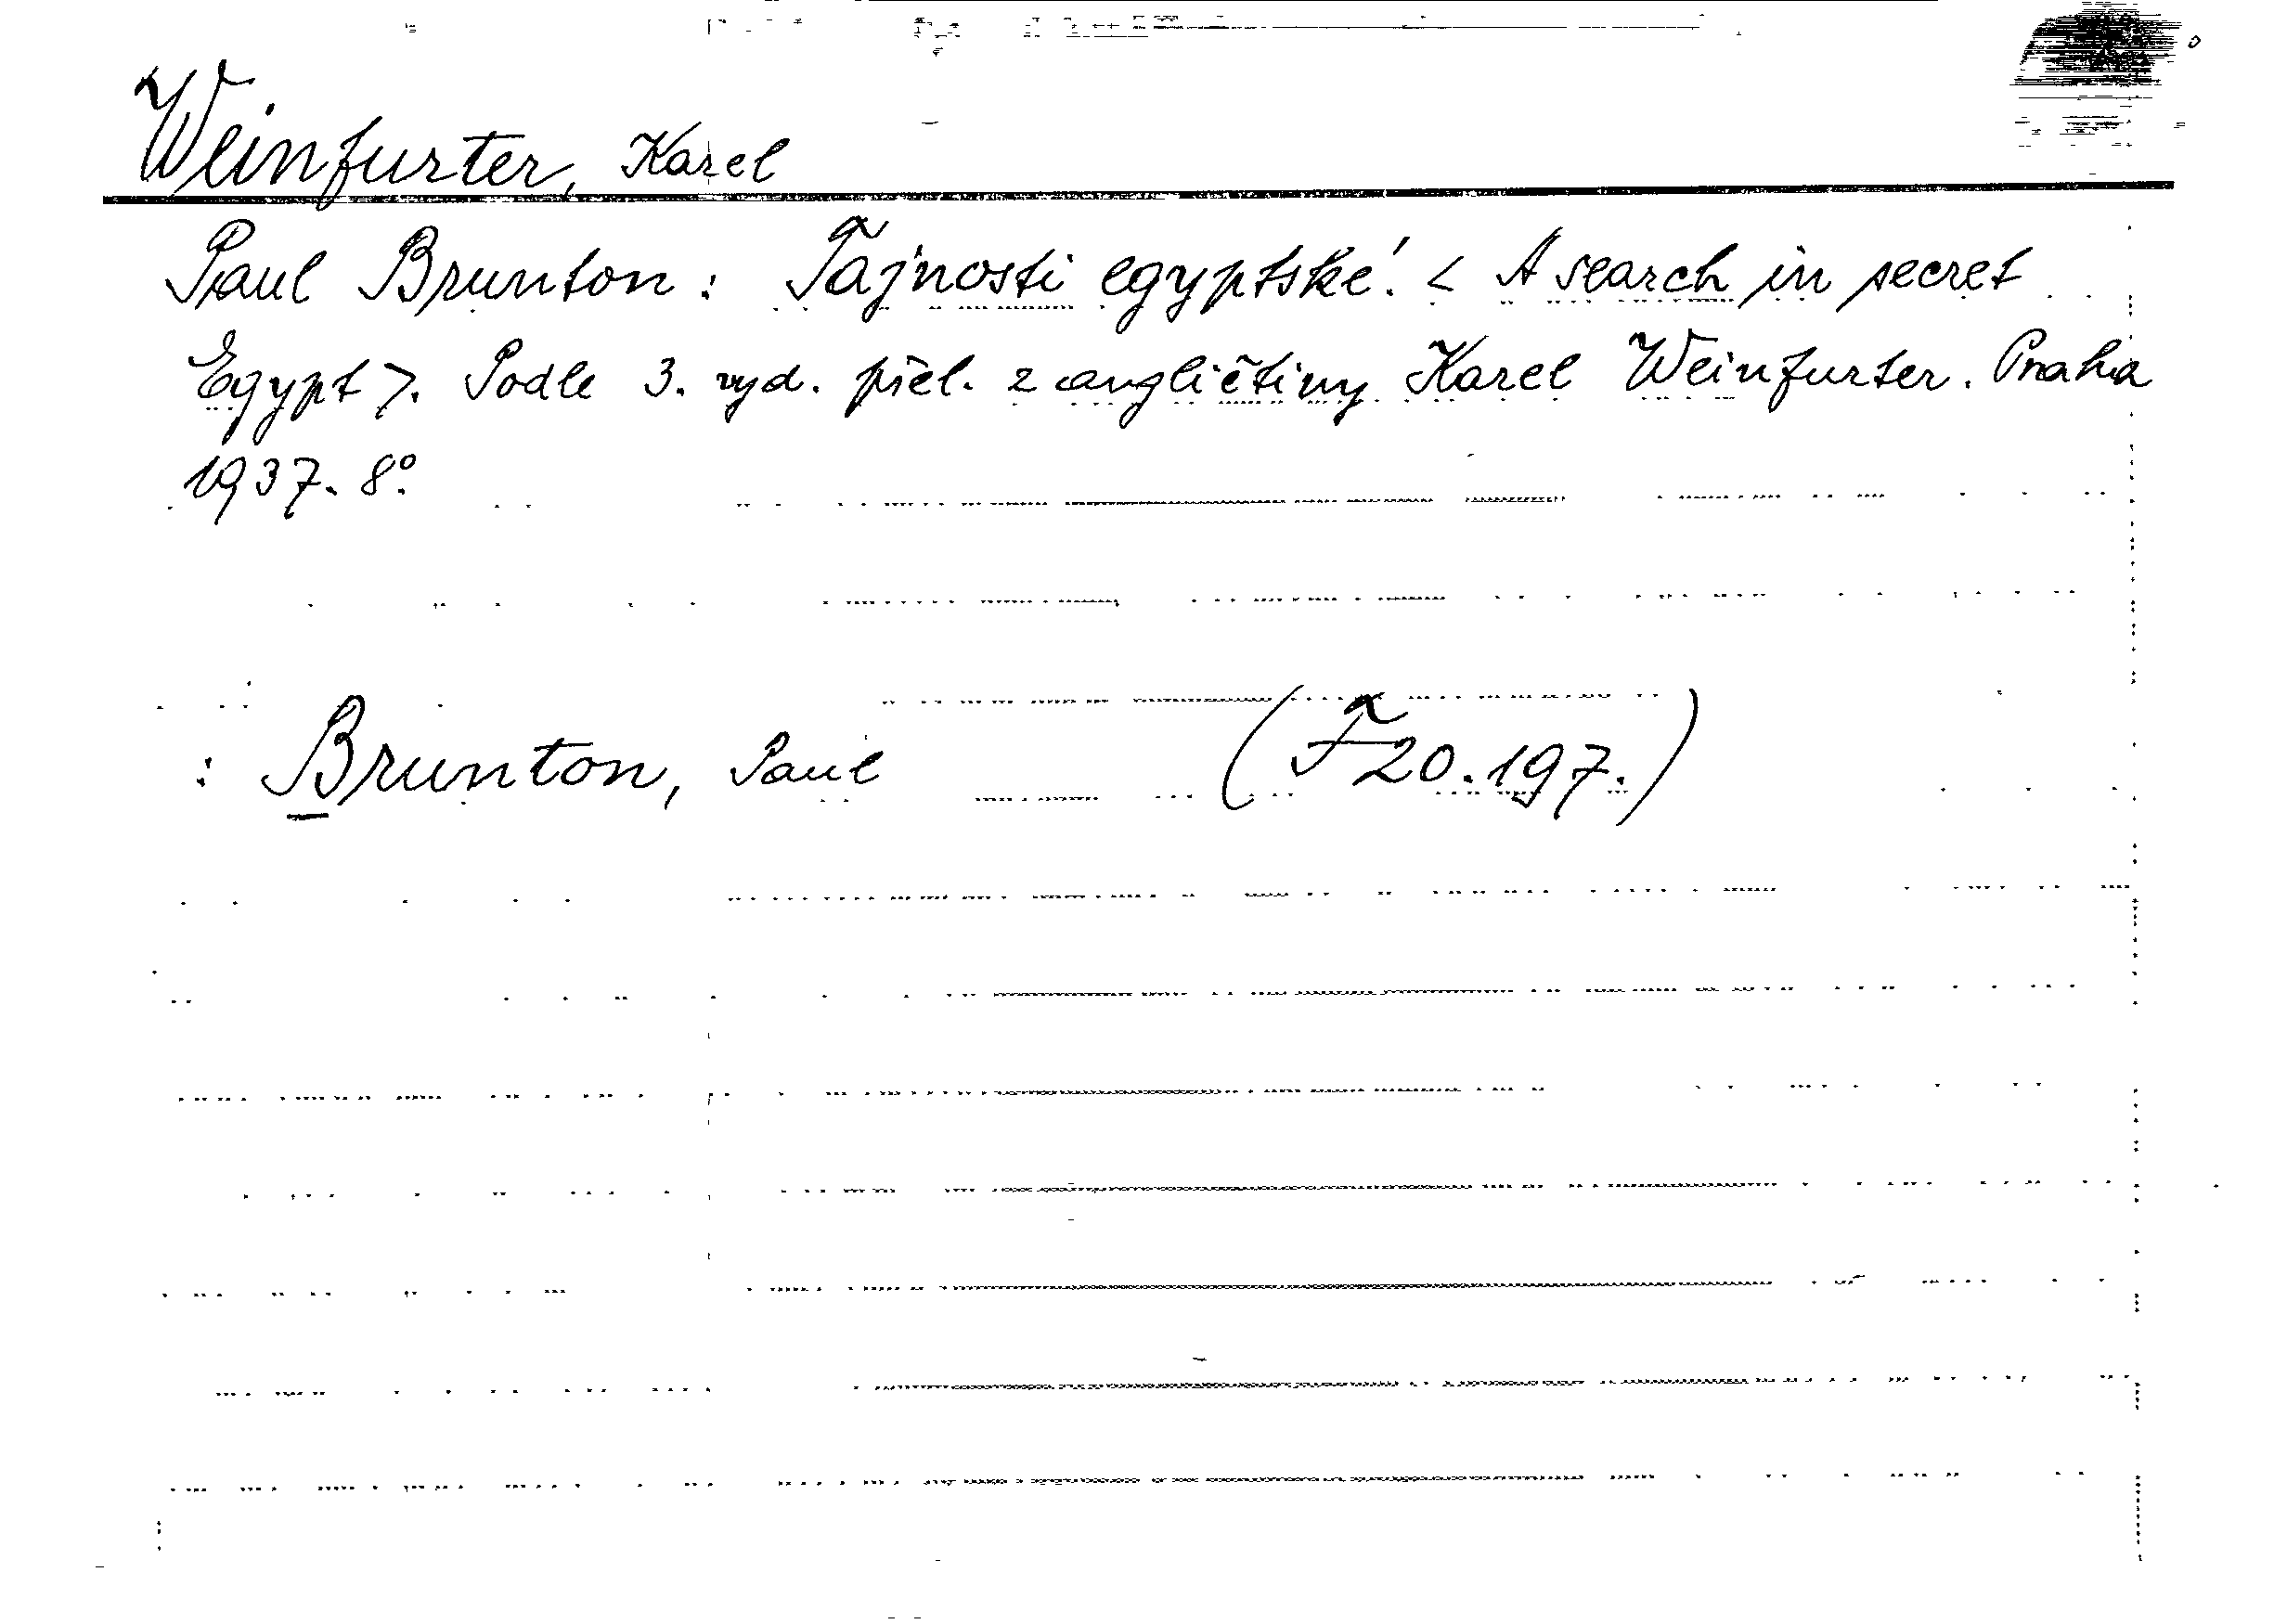 Weinfurter, Karel
Paul Brunton: Tajnosti egyptské. < A search in secret
Egypt >. Podle 3. vyd. přel. z angličtiny Karel Weinfurter. Praha
1937. 8°.
: Brunton, Paul (F 20.197.)